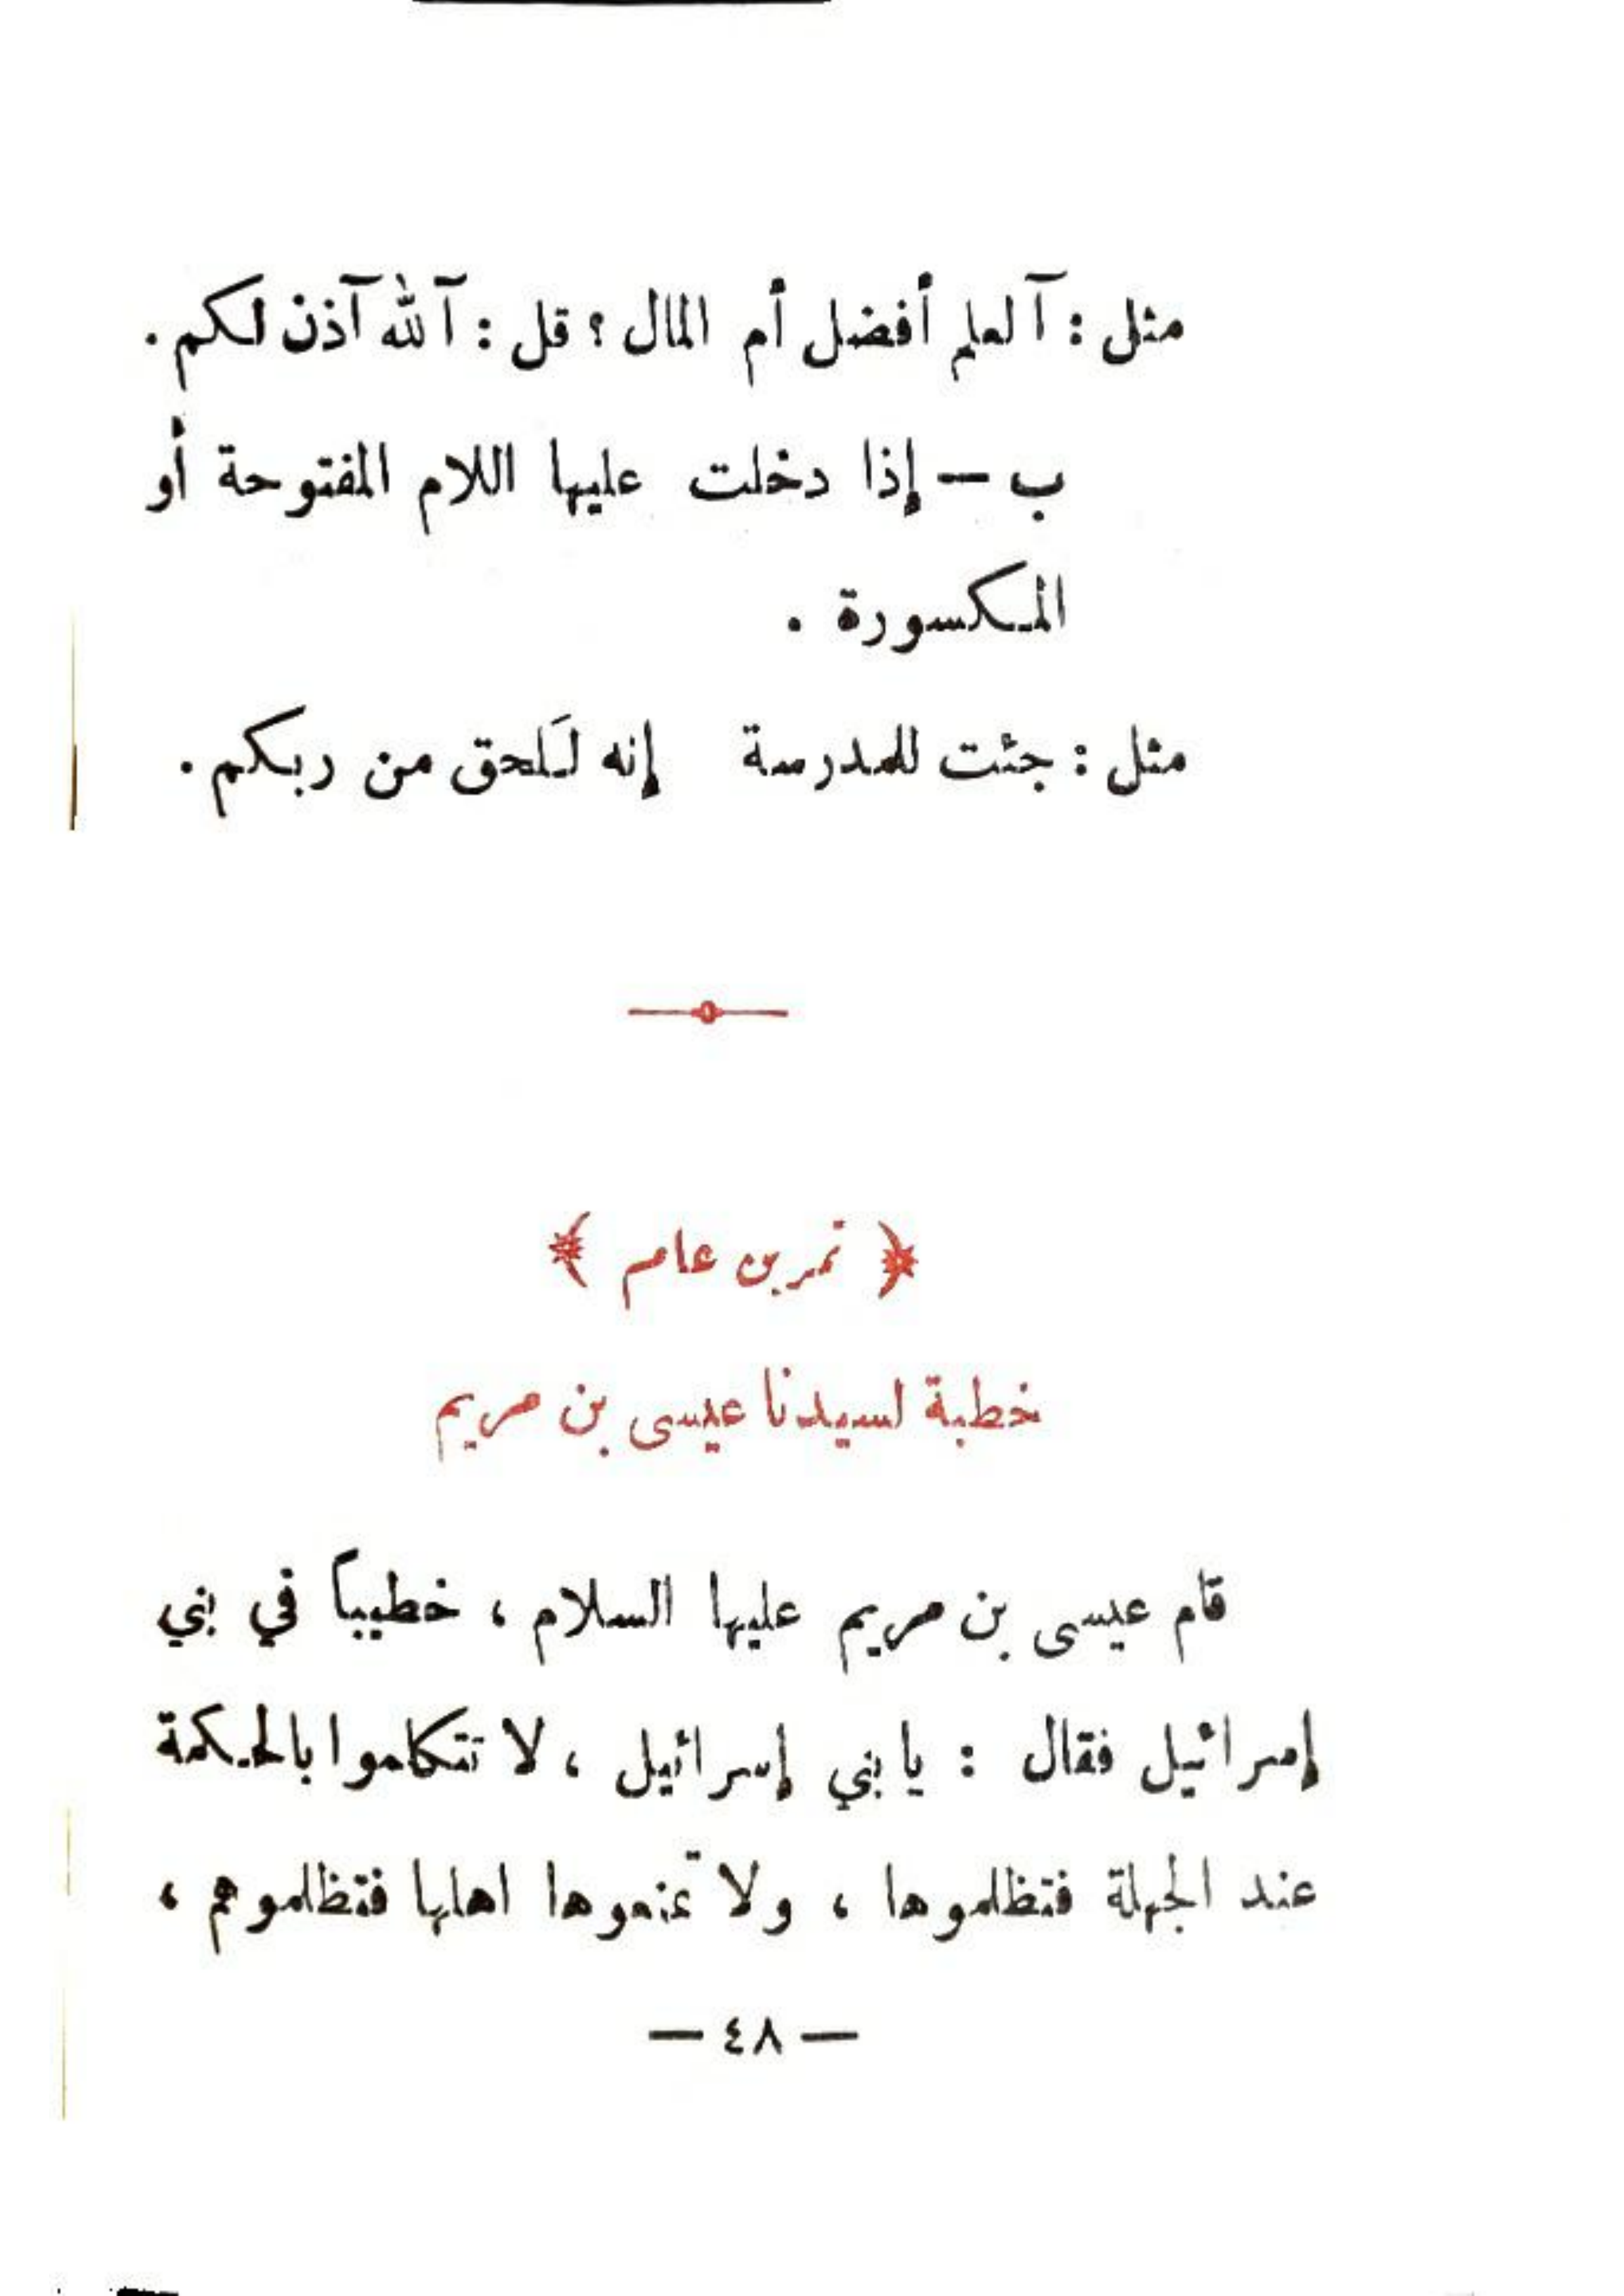 مثل : آلعلم أفضل أم المال ؟ قل : آلله آذن لكم .
ب – إذا دخلت عليها اللام المفتوحة أو
المكسورة .
مثل : جئت للمدرسة إنه لَلحق من ربكم .
﴿ تمرين عام ﴾
خطبة لسيدنا عيسى بن مريم
قام عيسى بن مريم عليها السلام ، خطيباً في بني
إسرائيل فقال : يا بني إسرائيل ، لا تتكلموا بالحكمة
عند الجهلة فتظلموها ، ولا تمنعوها اهلها فتظلموهم ،
— ٤٨ —